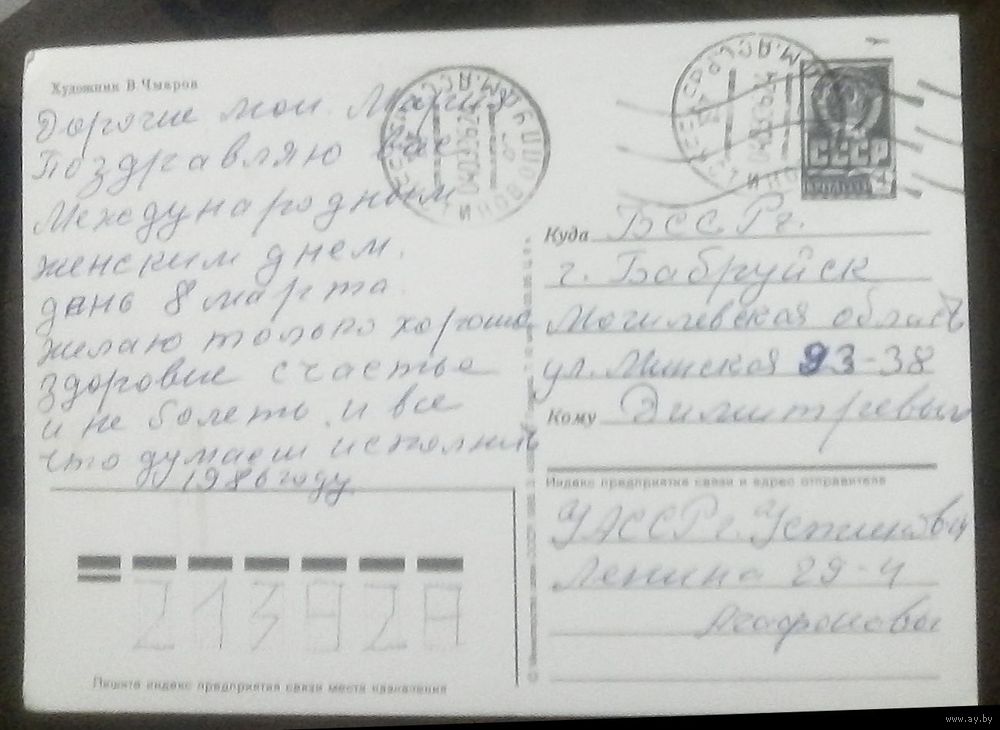 Художник В. Чмаров
Дорогие мои. Мария
Поздравляю вас
Международным
женским днем.
день 8 марта.
желаю только хороше
здоровие счастье
и не болеть. и все
что думаеш исполнить
1986 году
СССР
4
Куда БССР г.
г. Бабруйск
Могилевская область
ул. Минская 93-38
Кому Димитревым
Индекс предприятия связи и адрес отправителя
УАССР г. Устинов
Ленина 29-4
Агафоновы
213928
Пишите индекс предприятия связи места назначения
www.ay.by